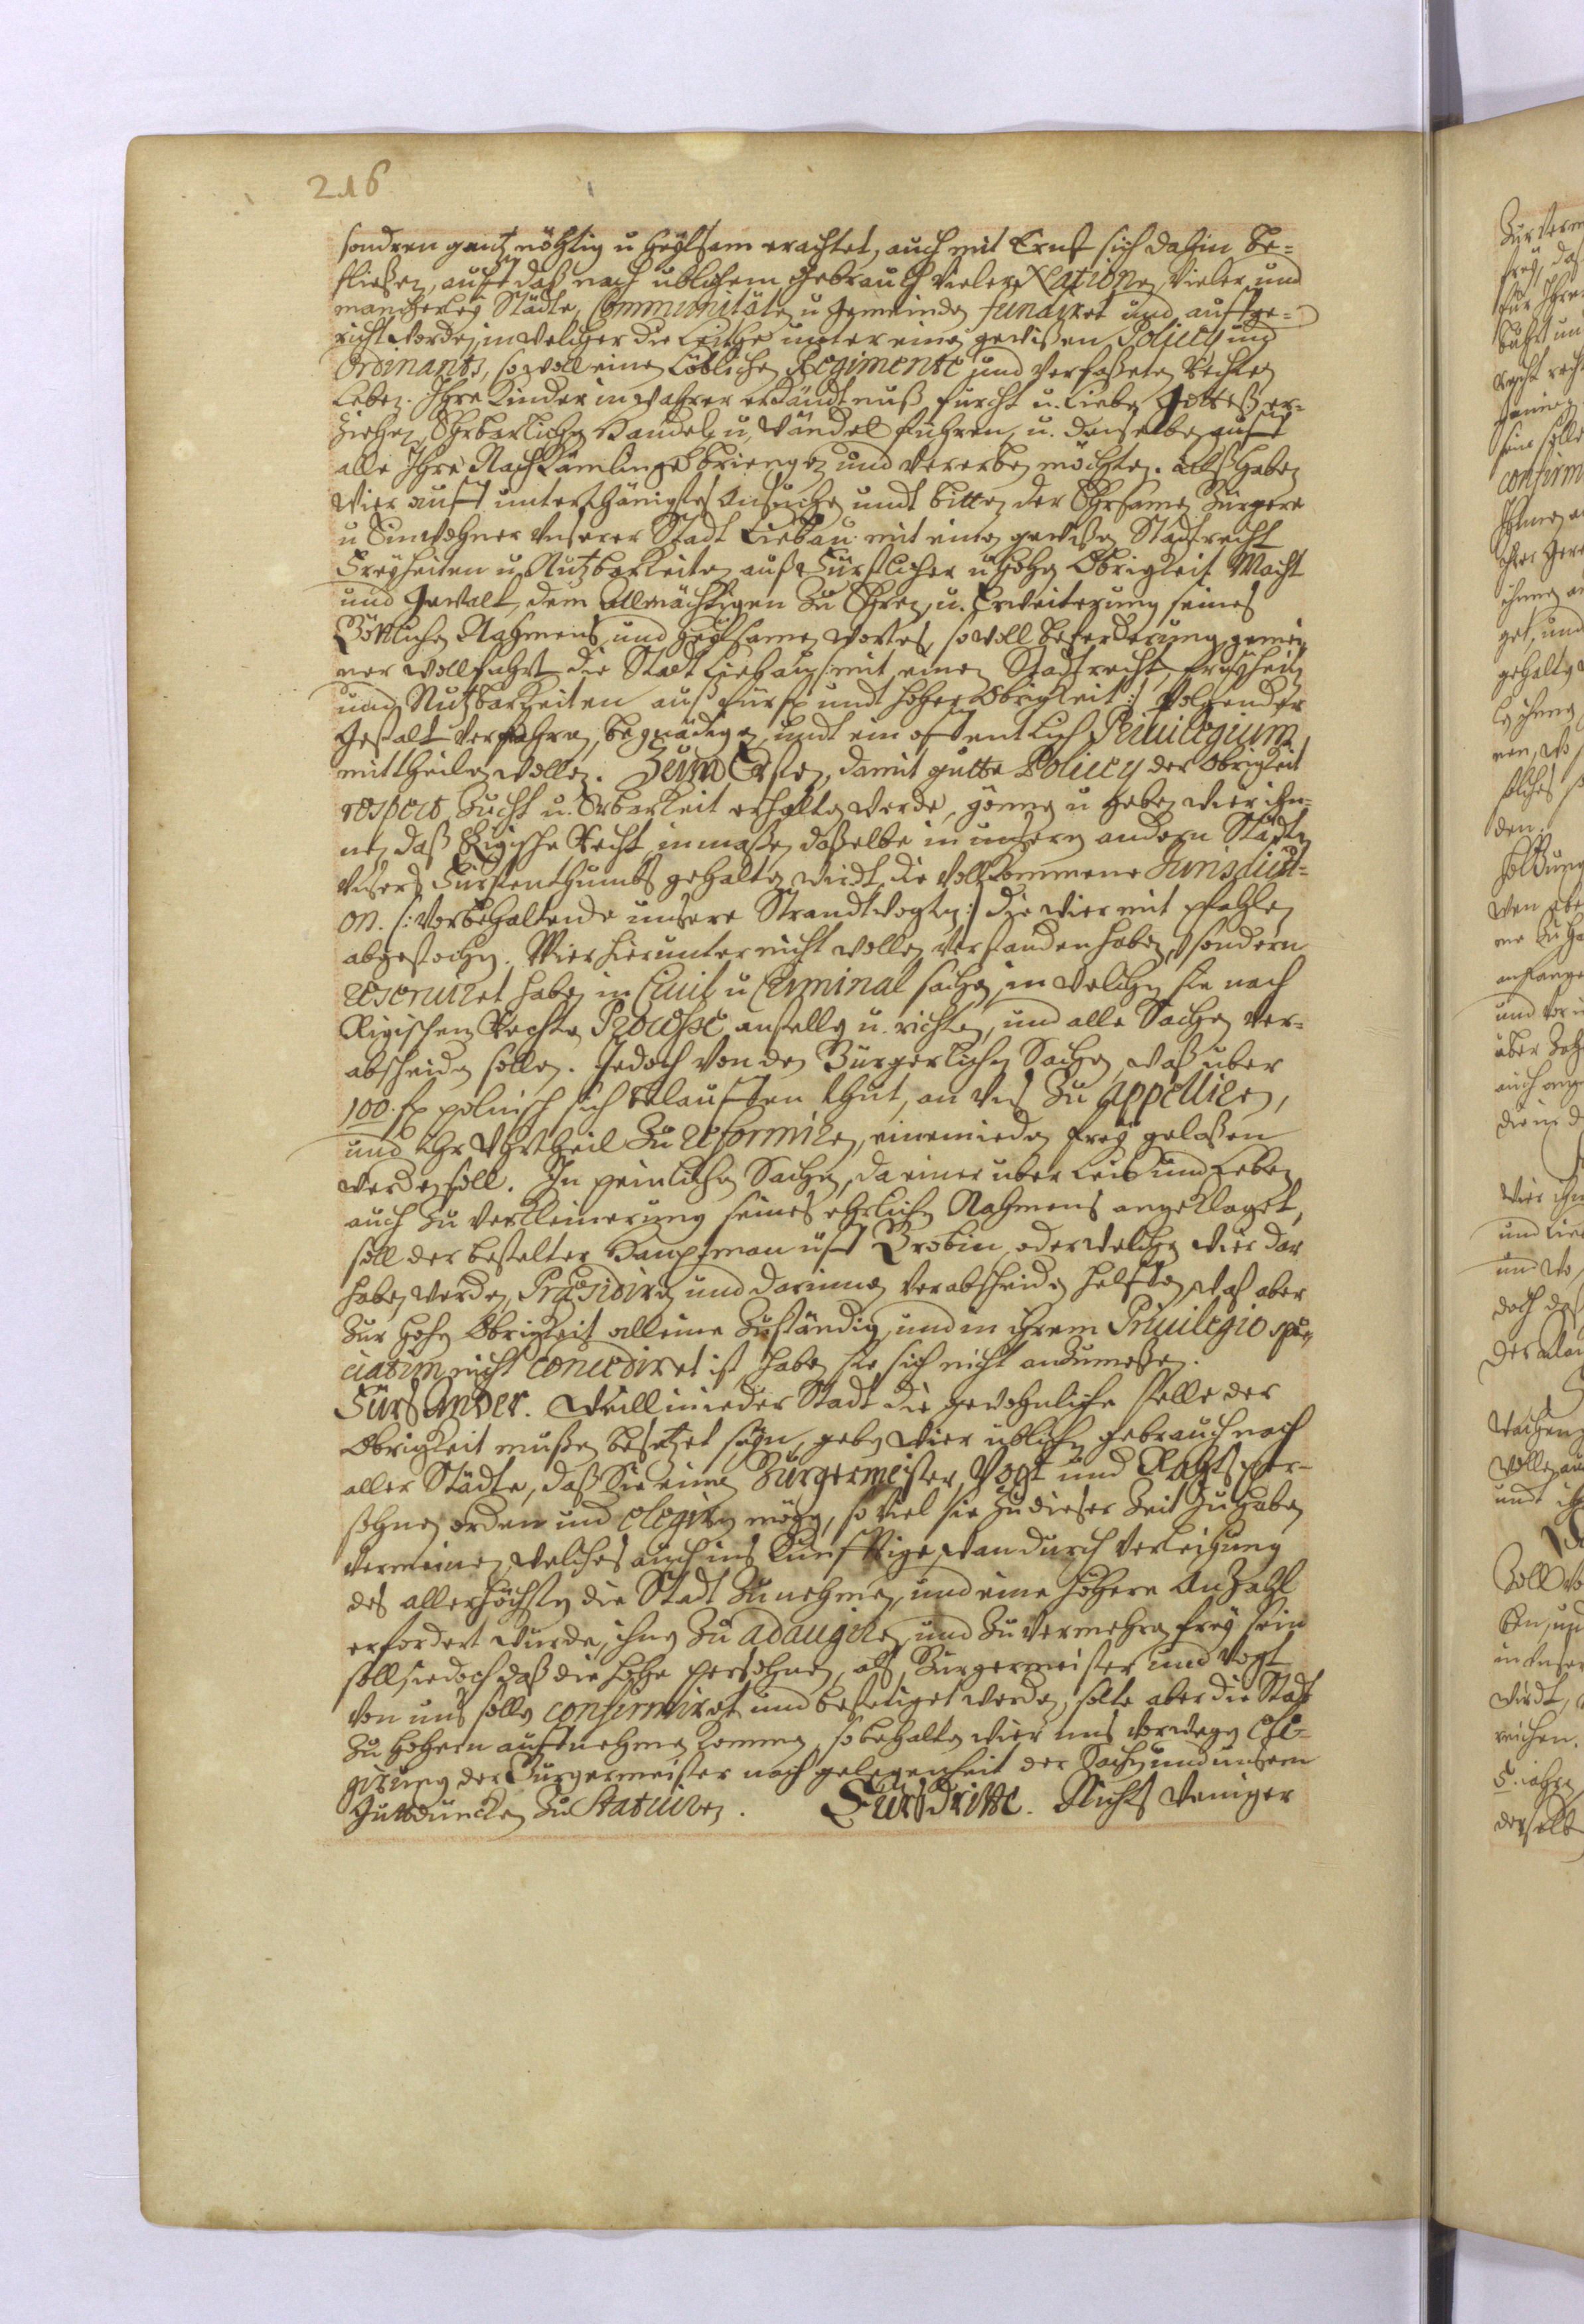 216
sondren gantz nöhtig u heylsam erachtet, auch mit Ernst sich dahin be=
fließen, auff daß nach ublichem Gebrauch vieler Nationen, vieler und
mancherley Städte, Communitäten u gemeinden fundiret und auffge=
richt worden, in welcher die Leuthe unter einer gewißen Policey und
Ordinants, so woll einem Löblichen Regimente und verfaßeten Rechten
Leben. Ihre Kinder in wahrer erkändtnuß, furcht u. Liebe Gotteß er=
ziehen, Ehrbarlichen Handel u, Wandel führen, u. denselben auff
alle Ihre Nachkömlinge bringen und vererben möchten. Alß haben
Wier auff unterthänigstes Ansuchen undt bitten der Ehrsamen Bürgere
u Einwohner Unserer Stadt Liebau mit einem gewißen Stadtrecht
Freyheiten u Nutzbarkeiten auß Fürstlicher u hohen Obrigkeit Macht
und Gewalt, dem Allmächtigen zu Ehren, u. Erweiterung seines
Göttlichen Nahmens und heylsamen wortes, so woll beforderung gemei
ner wollfahrt die Stadt Liebau /: mit einem Stadtrecht, freyheiten
und Nutzbarkeiten auß fürstl. undt hoher Obrigkeit :/ volgender
gestalt versehen, begnädigen, undt ein offentlich Privilegium
mittheilen wollen. Zum Ersten, damit gutte Policey der Obrigkeit
respect, Zucht u. Erbarkeit erhalten werde, gönnen u geben wier ihn=
nen daß Rigische Recht, inmaßen daßelbe in unsern andern Städten
Unsers Fürstenthumbs gehalten wirdt, die vollkommene Jurisdicti=
on. /: Vorbehaltende unsere Strandtvogtey :/ die wier mit pfahlen
abgestochen. Wier hierunter nicht wollen verstanden haben, sondern
reserviret haben in Civil u Criminal sachen, in welchen sie nach
Rigischem Rechte Processe anstellen u. richten, und alle Sachen ver=
abscheiden sollen. Jedoch von den Bürgerlichen Sachen, waß uber
100. fl polnisch sich belauffen thut, an Uns zu appelliren,
und ihr Uhrtheil zu reformiren, einem ieden frey gelaßen
werden soll. In peinlichen Sachen, da einer uber Leib und Leben
auch zu verkleinerung seines ehrlichen Nahmens angeklaget,
soll der bestelter Hauptman uff Grobin, oder welchen wier dar
haben werden, Præsidiren und darinnen verabscheiden helffen, waß aber
zur hohen Obrigkeit alleine zuständig, und in ihrem Privilegio spe,
ciatim nicht concediret ist, haben sie sich nicht anzumaßen.
Fürs Ander. Weill in ieder Stadt die gewohnliche stelle der
Obrigkeit mußen besetzet seyn, geben wier üblichen gebrauch nach
aller Städte, daß Sie einen Bürgermeister, Vogt und Rahts per=
sohnen orden und eligiren mögen, so viel sie zu dieser Zeit zu haben
vermeinen, welches auch ins künfftige, wan durch verleihung
des allerhöchsten die Stadt zunehmen, und eine höhere Anzahl
erfordert wurde, ihnen zu adaugiren, und zu vermehren frey sein
soll, iedoch daß die hohe persohnen, als Bürgermeister und Vogt
von uns sollen confirmiret und bestetiget werden, solte aber die Stadt
zu hohern auffnehmen kommen, so behalten wier uns vorwegen Eli=
girung der Bürgermeister nach gelegenheit der Sachen und unserm
Gutdüncken zu Statuiren. Fürs Dritte. Nichts weniger